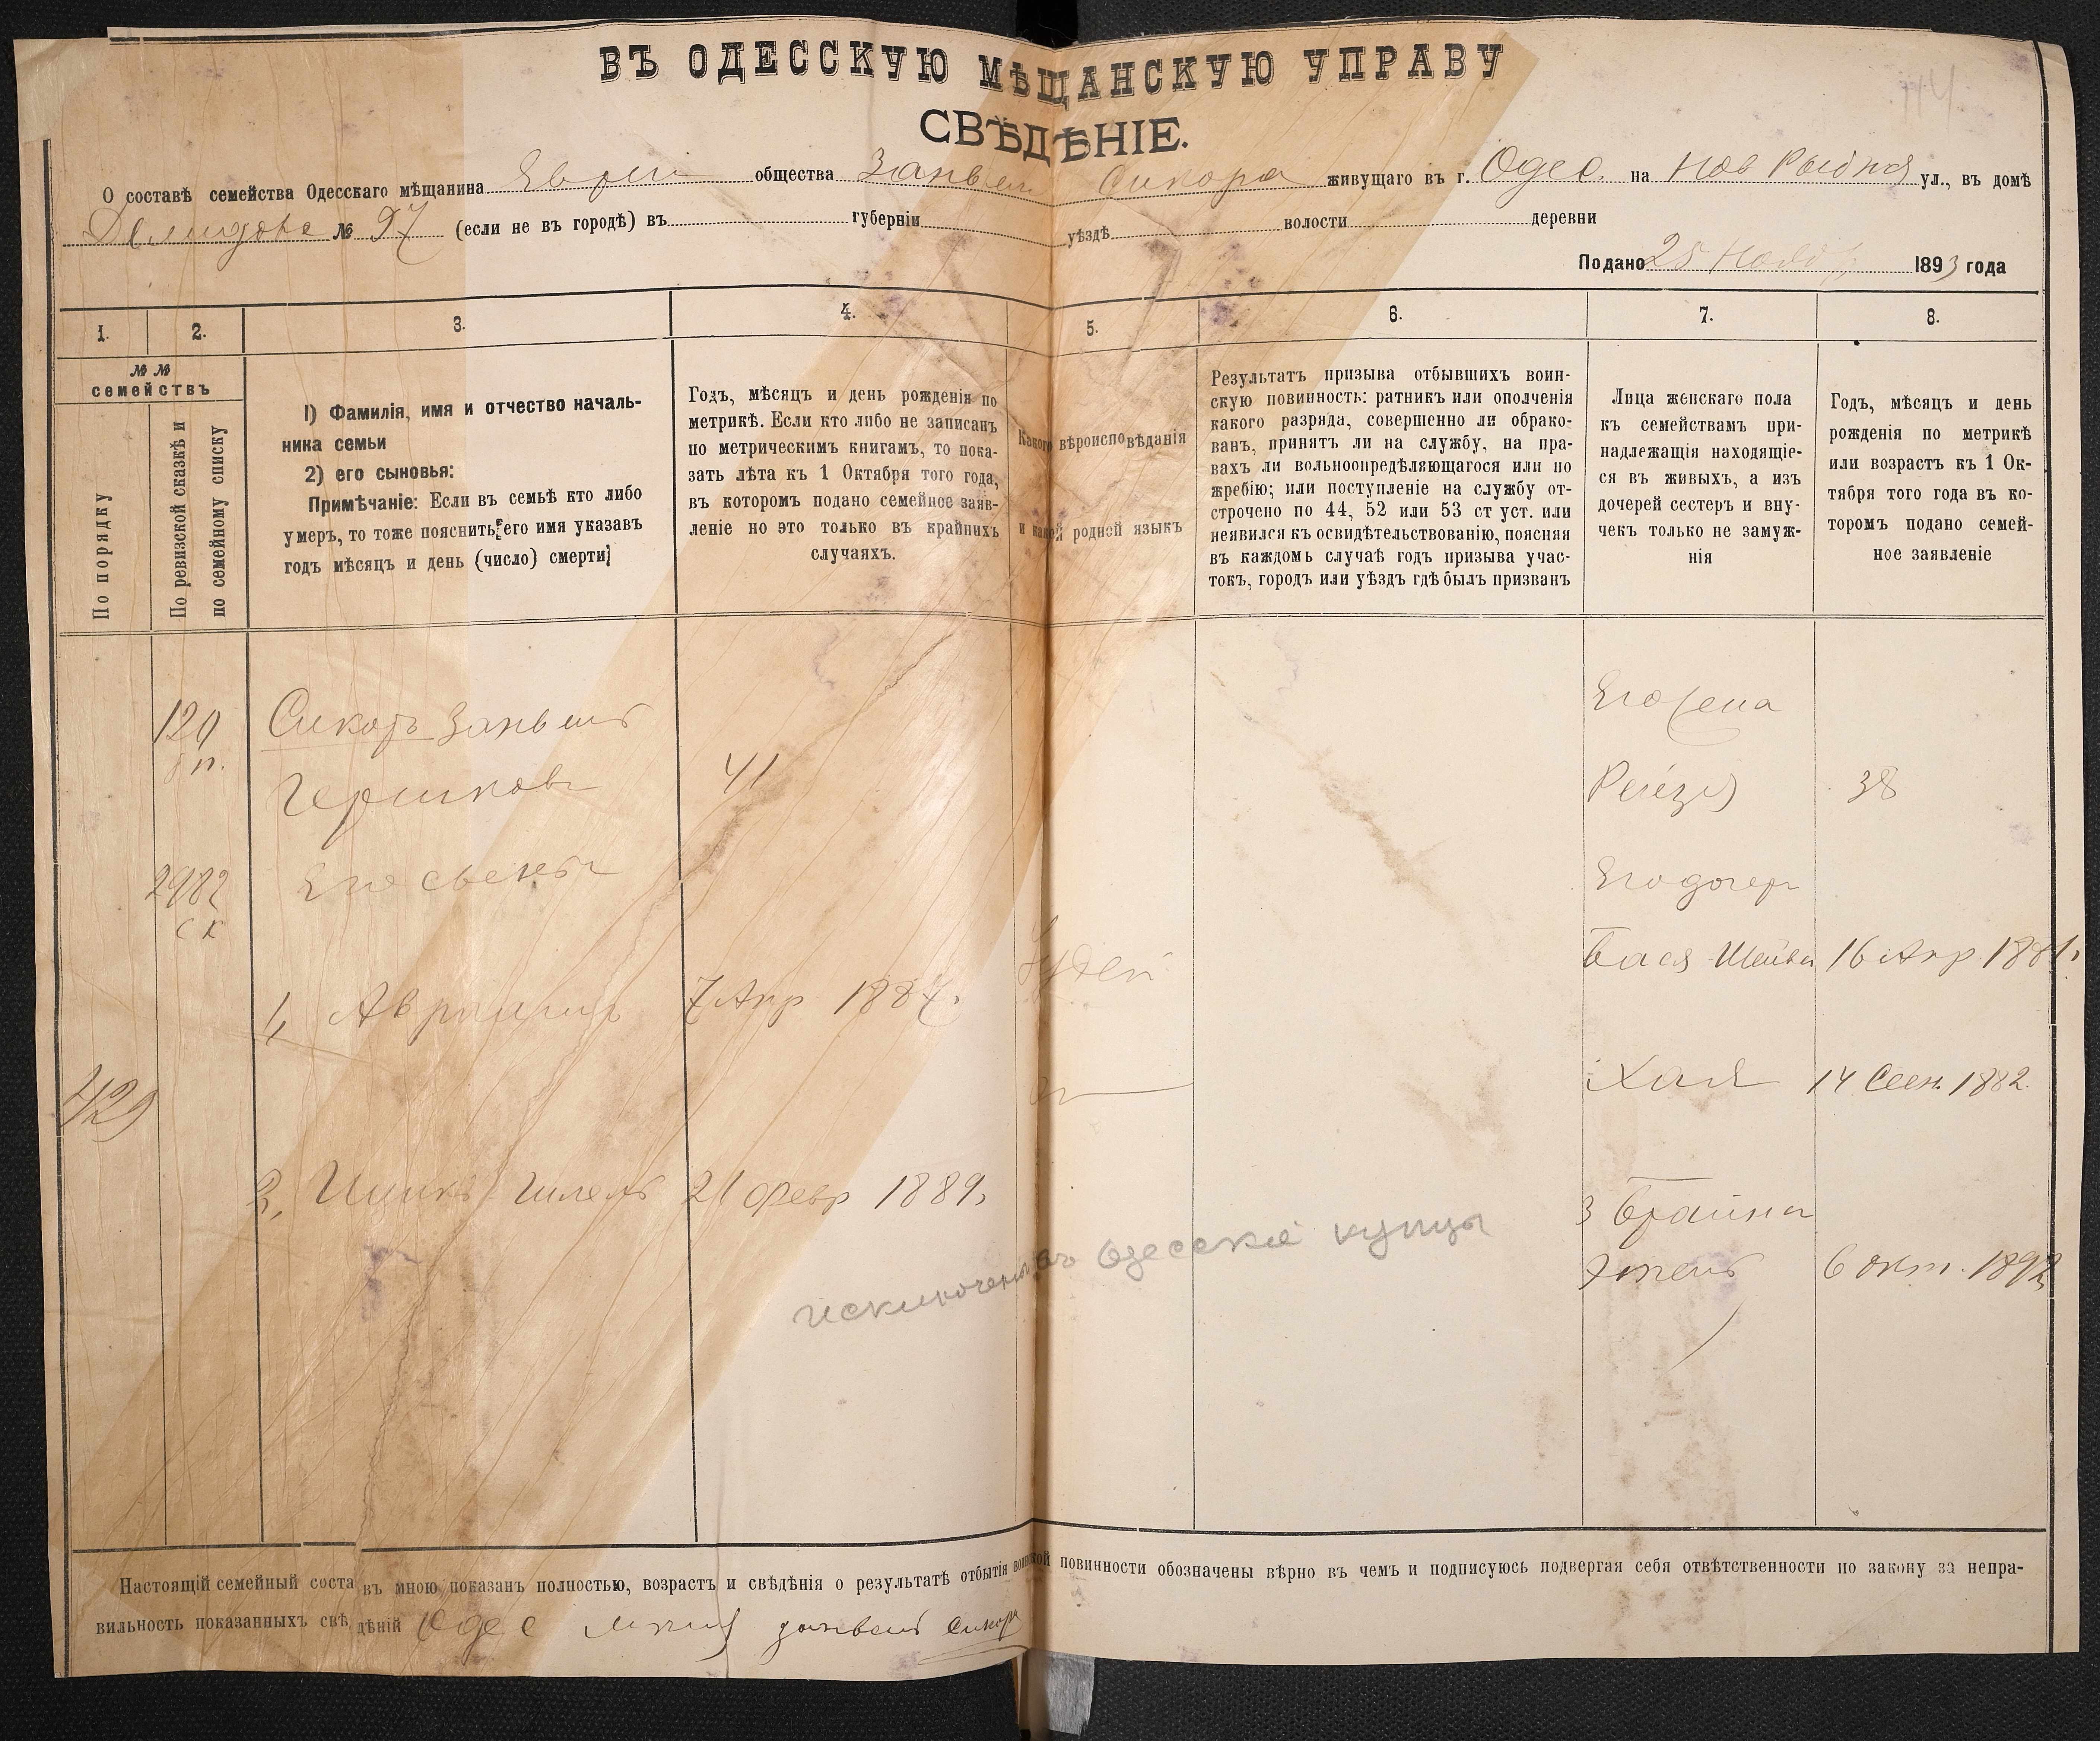 ВЪ ОДЕССКУЮ МѢЩАНСКУЮ УПРАВУ
СВѢДѢНІЕ.
О составѣ семейства Одесскаго мѣщанина общества Занвеля Сикора живущаго въ г. Одес. на Нов Рыбная ул., въ домѣ
Демидова № 97 (если не въ городѣ) въ губерніи уѣздѣ волости деревни
Подано 25 Нояб 1893 года
1. 2. 3. 4. 5. 6. 7. 8.
№ №
семействъ
По порядку
По ревизской сказкѣ и
по семейному списку
1) Фамилія, имя и отчество началь-
ника семьи
2) его сыновья:
Примѣчаніе: Если въ семьѣ кто либо
умеръ, то тоже пояснить его имя указавъ
годъ мѣсяцъ и день (число) смерти;
Годъ, мѣсяцъ и день рожденія по
метрикѣ. Если кто либо не записанъ
по метрическимъ книгамъ, то пока-
зать лѣта къ 1 Октября того года,
въ которомъ подано семейное заяв-
леніе но это только въ крайнихъ
случаяхъ.
Какого вѣроисповѣданія
и какой родней языкъ
Результатъ призыва отбывшихъ воин-
скую повинность: ратникъ или ополченія
какого разряда, совершенно ли обрако-
ванъ, принятъ ли на службу, на пра-
вахъ ли вольноопредѣляющагося или по
жребію; или поступленіе на службу от-
строчено по 44, 52 или 53 ст уст. или
неявился къ освидѣтельствованію, поясняя
въ каждомъ случаѣ годъ призыва учас-
токъ, городъ или уѣздъ гдѣ былъ призванъ
Лица женскаго пола
къ семействамъ при-
надлежащія находящіе-
ся въ живыхъ, а изъ
дочерей сестеръ и вну-
чекъ только не замуж-
нія
Годъ, мѣсяцъ и день
рожденія по метрикѣ
или возрастъ къ 1 Ок-
тября того года въ ко-
торомъ подано семей-
ное заявленіе
120 Сикоръ Занвель Его жена
Гершковъ 41 38
2982 Его сыновья Его дочери
с к
Бася Шейва 16 Апр 1881.
1, Авраамъ 7 Апр 1887. Іудей
Хая 14 Сен. 1882.
429
2, Ицикъ Гилель 21 февр 1889,
3 Брайна
Этель 6 окт. 1892
исключены въ Одесскіе купцы
Настоящій семейный составъ мною показанъ полностью, возрастъ и свѣдѣнія о результатѣ отбытія воинской повинности обозначены вѣрно въ чемъ и подписуюсь подвергая себя отвѣтственности по закону за непра-
вильность показанныхъ свѣдѣній Одес занвель Сикор